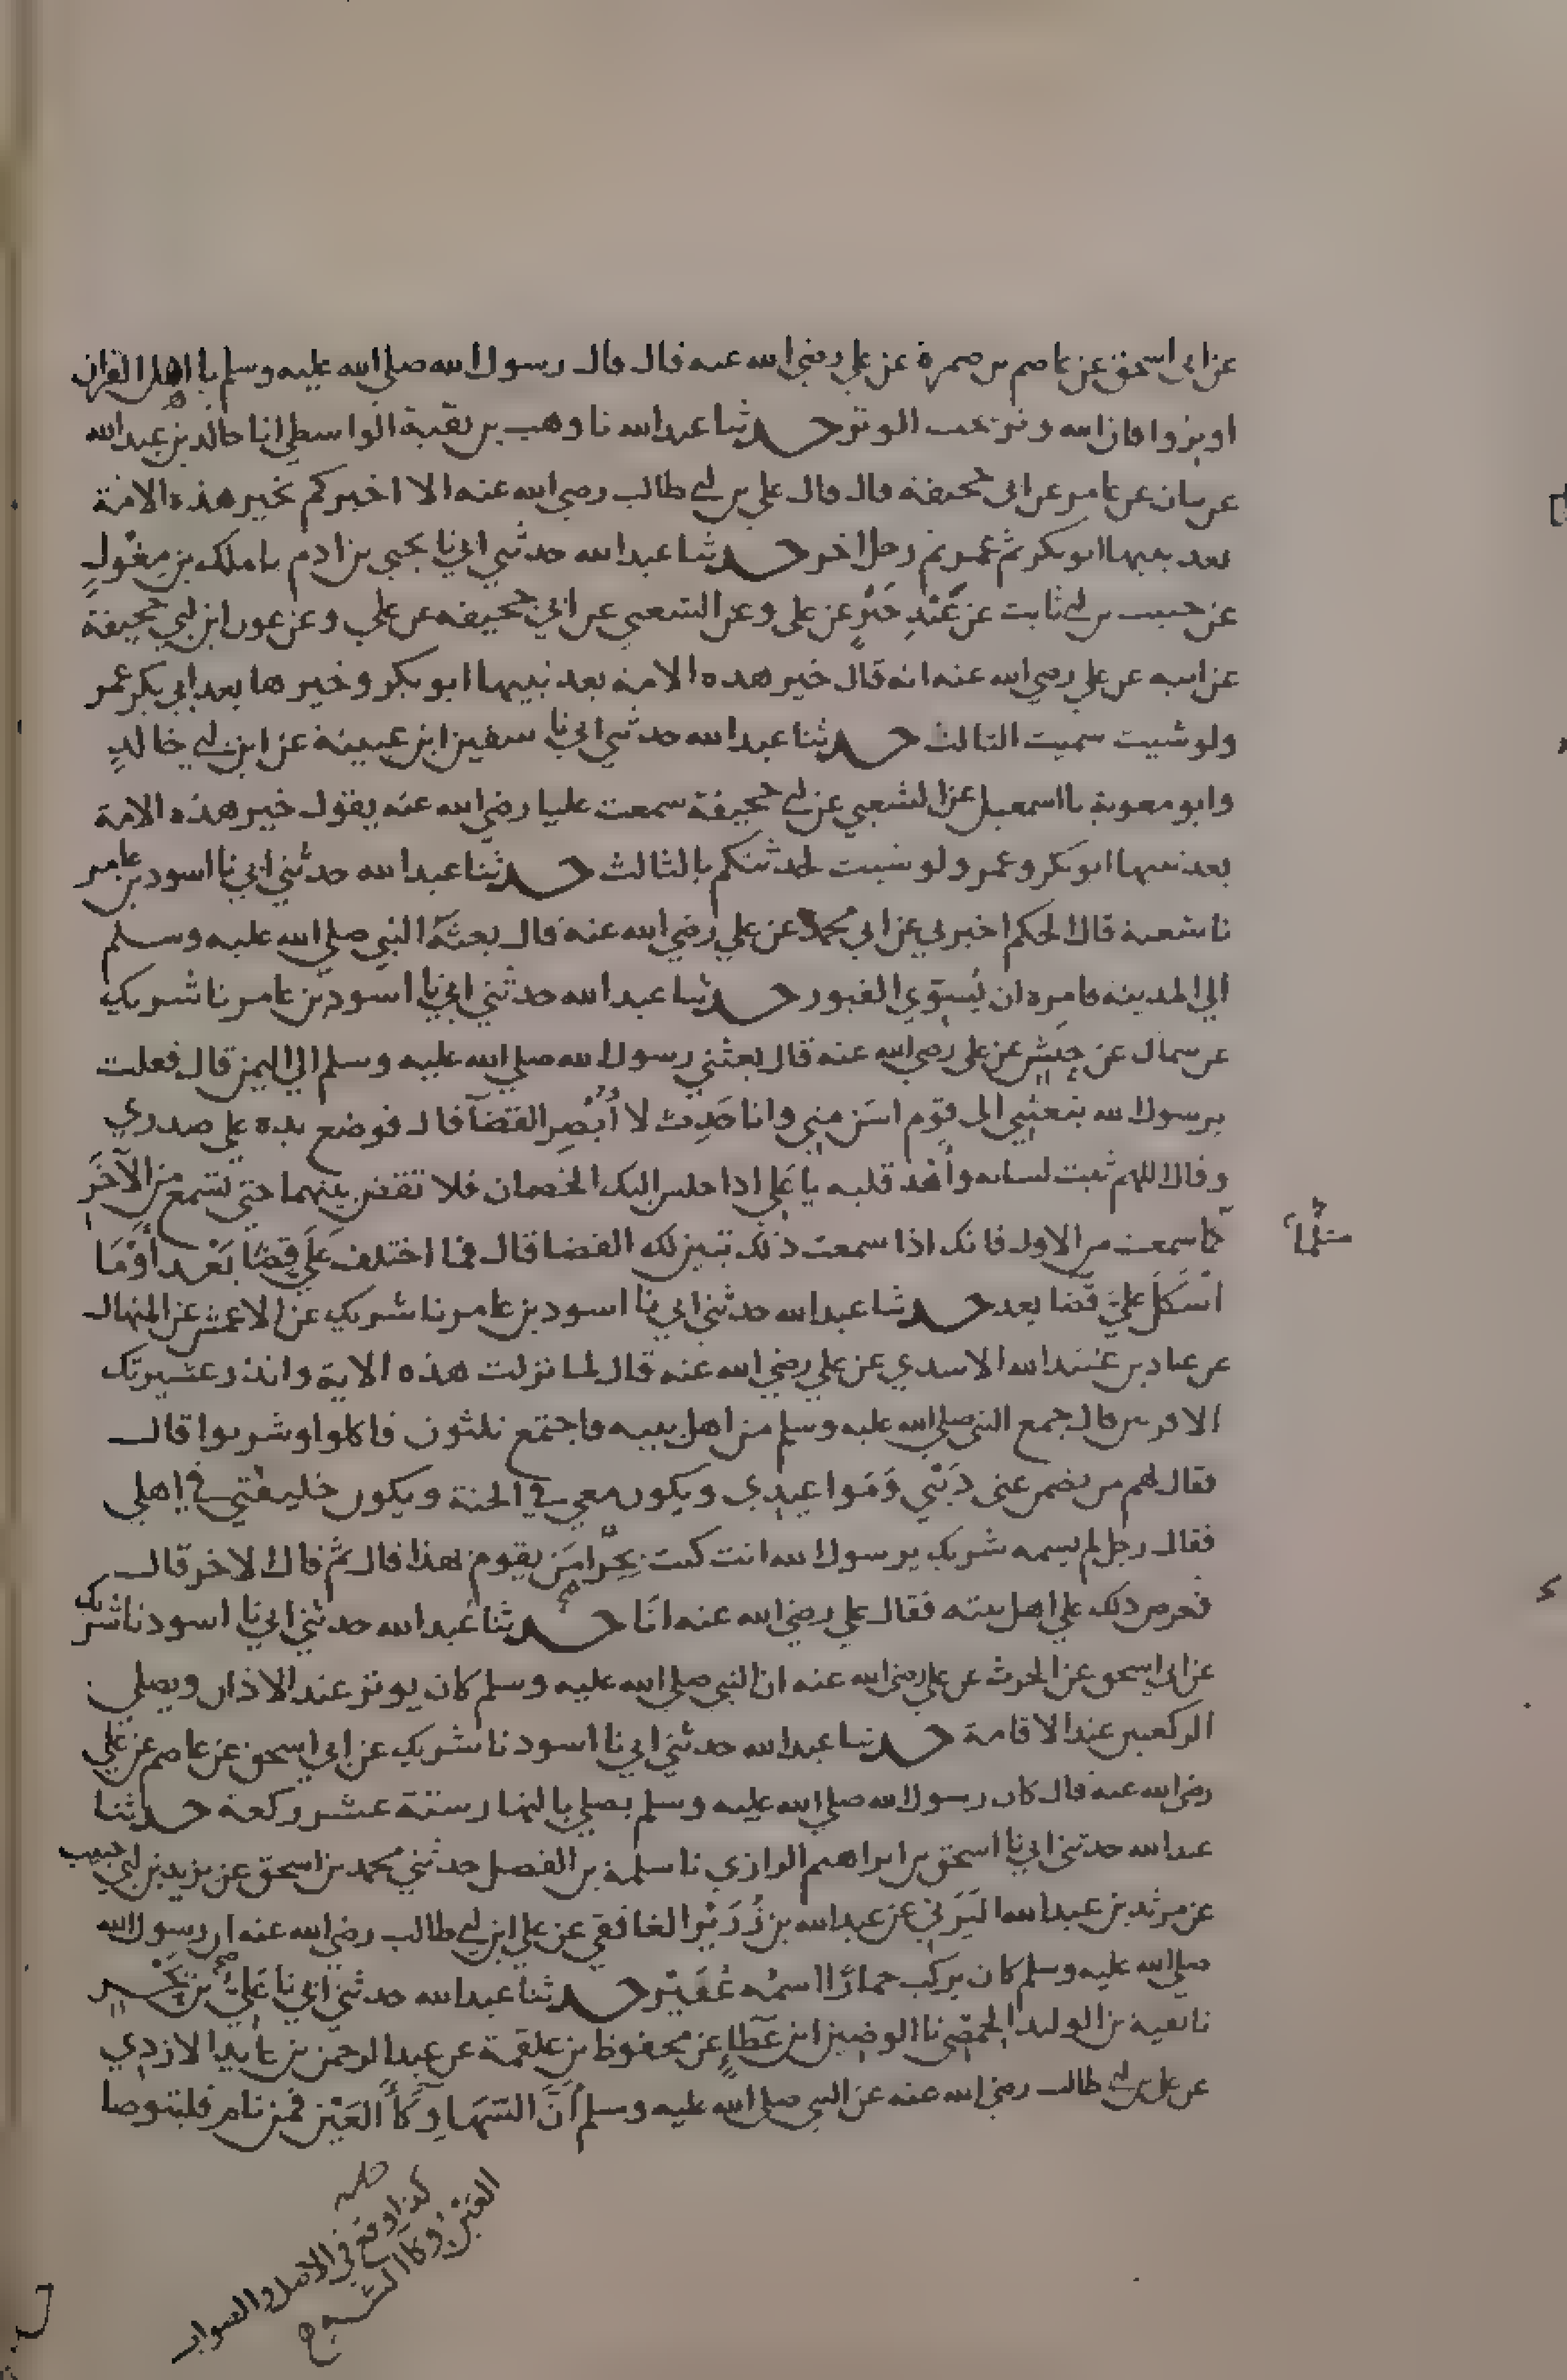 عن ابى اسحق عن عاصم بن ضمرة عن علي رضي الله عنه قال قال رسول الله صلي الله عليه وسلم يا اهل القران
اوتروا فان الله وتر يحب الوتر حدثنا عبد الله نا وهب بن بقية الواسطي انا خالد بن عبد الله
عن بيان عن عامر عن ابى جحيفة قال قال علي بن ابي طالب رضي الله عنه الا اخبركم بخير هذه الامة
بعد نبيها ابو بكر ثم عمر ثم رجل اخر حدثنا عبد الله حدثني ابي نا يحيى بن ادم نا ملك بن مغول
عن حبيب بن ابي ثابت عن عبد خير عن علي وعن الشعبي عن ابي جحيفه عن علي وعن عون ابن ابي جحيفة
عن ابيه عن علي رضي الله عنه انه قال خير هذه الامة بعد نبيها ابو بكر وخيرها بعد ابي بكر عمر
ولو شيت سميت الثالث حدثنا عبد الله حدثني ابي نا سفين ابن عيينة عن ابن ابي خالد
وابو معوية نا اسمعيل عن الشعبي عن ابي جحيفة سمعت عليا رضي الله عنه يقول خير هذه الامة
بعد نبيها ابو بكر وعمر ولو شيت لحدثتكم بالثالث حدثنا عبد الله حدثني ابي نا اسود بن عامر
نا شعبة قال الحكم اخبرني عن ابي محمد عن علي رضي الله عنه قال بعثه النبي صلي الله عليه وسلم
الي المدينه فامره ان يسوي القبور حدثنا عبد الله حدثني ابي نا اسود بن عامر نا شريك
عن سماك عن حنش عن علي رضي الله عنه قال بعثني رسول الله صلي الله عليه وسلم الي اليمن قال فقلت
يرسول الله تبعثني الى قوم اسن مني وانا حدث لا ابصر القضآ قال فوضع يده علي صدري
وقال اللهم ثبت لسانه واهد قلبه يا علي اذا جلس اليك الخصمان فلا تقض بينهما حتي تسمع من الآخر
كما سمعت من الاول فانك اذا سمعت ذلك تبين لك القضا قال فما اختلف علي قضا بعد او ما
اشكل علي قضا بعد حدثنا عبد الله حدثني ابي نا اسود بن عامر نا شريك عن الاعمش عن المنهال
عن عباد بن عبد الله الاسدي عن علي رضي الله عنه قال لما نزلت هذه الاية وانذر عشيرتك
الاقربين قال جمع النبي صلي الله عليه وسلم من اهل بيته فاجتمع ثلثون فاكلوا وشربوا قال
فقال لهم من يضمن عنى ديني ومواعيدي ويكون معي في الجنة ويكون خليفتي في اهلي
فقال رجل لم يسمه شريك يرسول الله انت كنت بحرا من يقوم بهذا قال ثم قال الاخر قال
فعرض ذلك علي اهل بيته فقال علي رضي الله عنه انا حدثنا عبد الله حدثني ابي نا اسود نا شريك
عن ابي اسحق عن الحرث عن علي رضي الله عنه ان النبي صلي الله عليه وسلم كان يوتر عند الاذان ويصلي
الركعتين عند الاقامة حدثنا عبد الله حدثني ابي نا اسود نا شريك عن ابي اسحق عن عاصم عن علي
رضي الله عنه قال كان رسول الله صلي الله عليه وسلم يصلي بالنهار ستة عشر ركعة حدثنا
عبد الله حدثني ابي نا اسحق بن ابراهيم الرازي نا سلمة بن الفضل حدثني محمد بن اسحق عن يزيد بن ابي حبيب
عن مرثد بن عبد الله اليزني عن عبد الله بن زرير الغافقي عن علي ابن ابي طالب رضي الله عنه ان رسول الله
صلي الله عليه وسلم كان يركب حمارًا اسمه عفير حدثنا عبد الله حدثني ابي نا علي بن بحر
نا بقية بن الوليد الحمصي نا الوضين ابن عطاء عن محفوظ بن علقمة عن عبد الرحمن بن عايد الازدي
عن علي بن ابي طالب رضي الله عنه عن النبي صلي الله عليه وسلم ان السه اوكا العين فمن نام فليتوضا
كذا وقع في الاصل والصواب
العين وكا السه